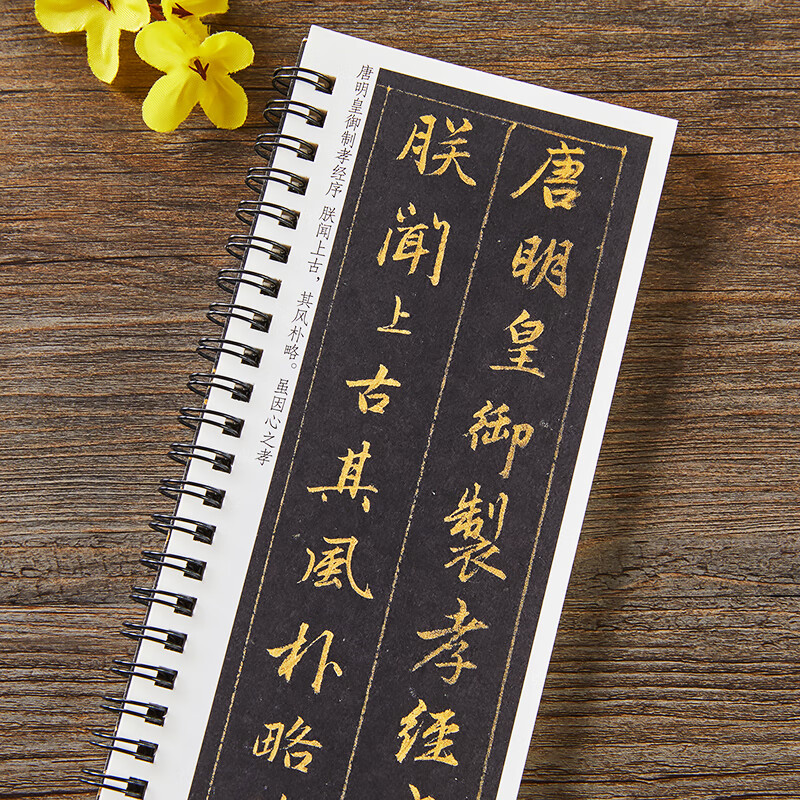 唐明皇御製孝經
朕聞上古其風朴略
唐明皇御制孝经序 朕闻上古，其风朴略。虽因心之孝